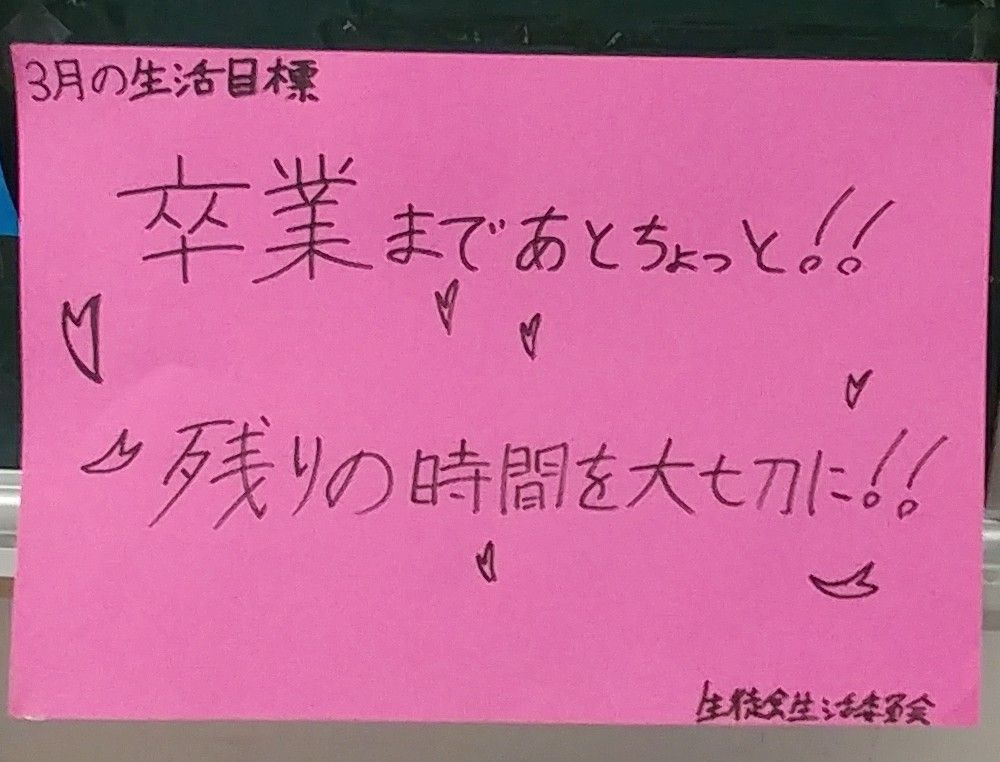 3月の生活目標
卒業まであとちょっと!!
残りの時間を大切に!!
生徒会生活委員会